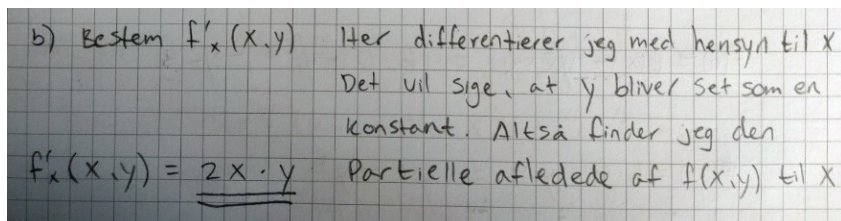 b) Bestem f'ₓ(x,y) Her differentierer jeg med hensyn til x
Det vil sige, at y bliver set som en
konstant. Altså finder jeg den
f'ₓ(x,y) = 2x · y Partielle afledede af f(x,y) til x